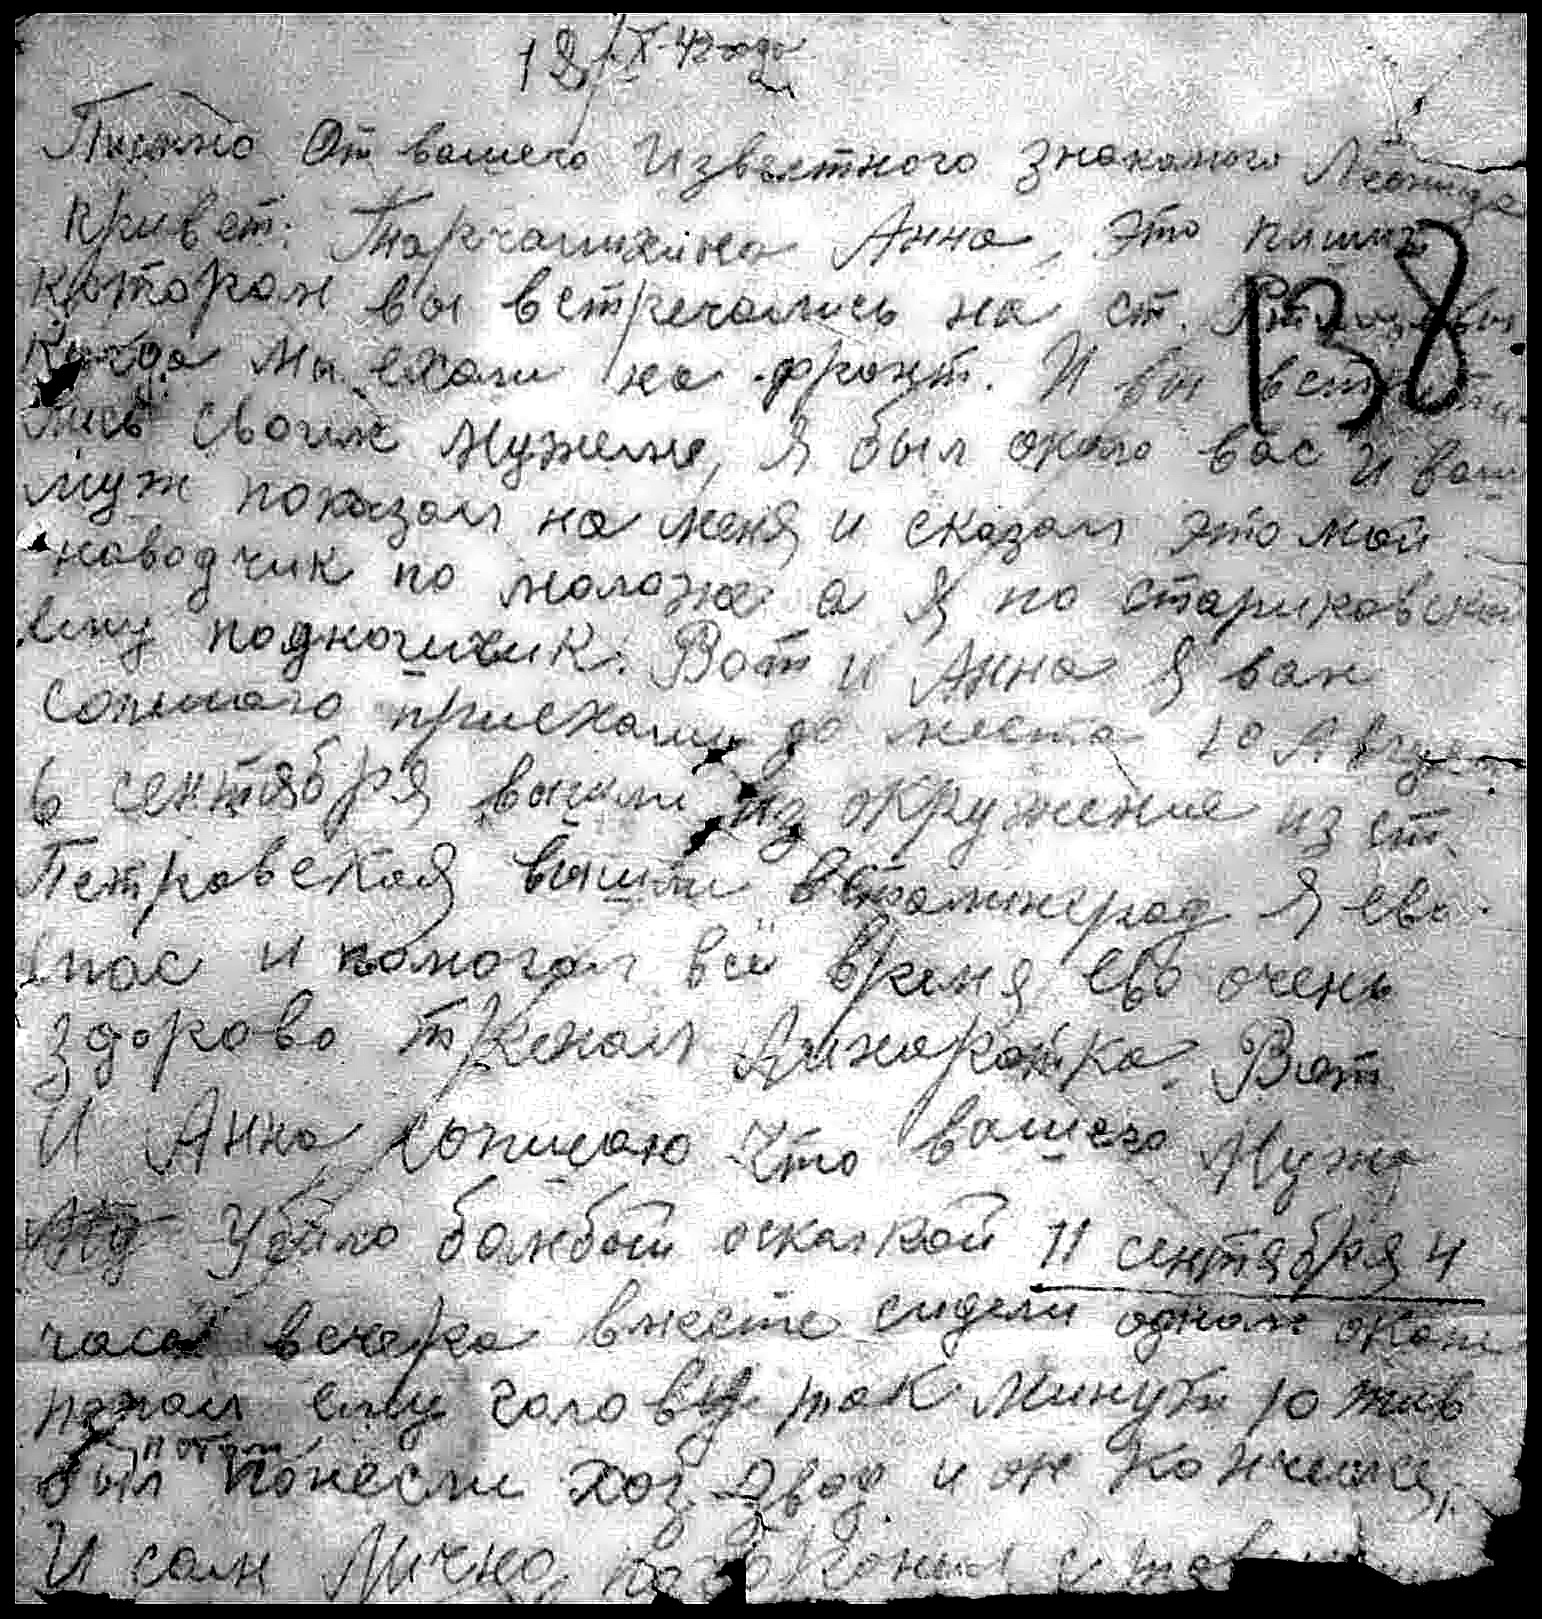 12/IX-42 года
Письмо От вашего Известного знакомого Леонида
привет. Анна, это пишит
которой вы встречались на ст.
Когда мы ехали на фронт. И вы
лись своим мужеме, Я был около вас и ваш
муж показал на меня и сказал это мой
наводчик по моложе а Я по стариковски
ему подносчик. Вот и Анна Я вам
сопишаго приехали до места 10 Август
6 сентября вышли из окружение из ст.
Петровская вышли в Сталинград Я ево
спас и помогал всё время ево очень
здорово трепал Лихорадка. Вот
И Анна сопишаю что вашего Мужа
Убило бомбой осколкой 11 сентября 4
часа вечера вместе сидели одном окоп
попал ему голову так минут 10 жив
был потом понесли хоз. взвод и он кончился,
И сам Лично
138